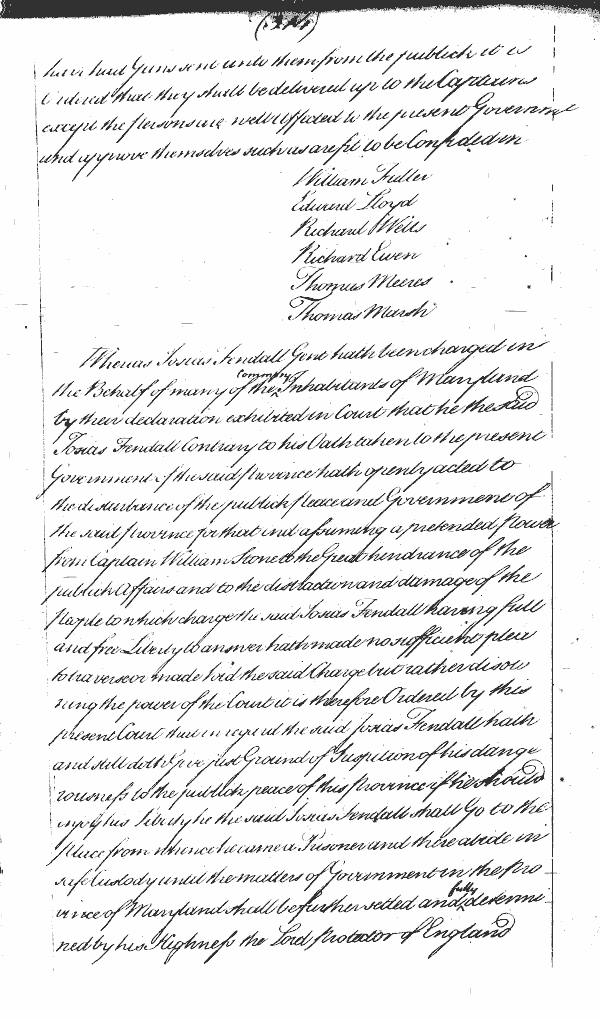 have had Guns sent unto them from the publick it is
Ordered that they shall be delivered up to the Captains
except the persons are well Affected to the present Government
and approve themselves such as are fit to be Confided in
William Fuller
Edward Lloyd
Richard Wells
Richard Ewen
Thomas Meeres
Thomas Marsh
Whereas Josias Fendall Gent hath been charged in
the Behalf of many of the common Inhabitants of Maryland
by their declaration exhibited in Court that he the said
Josias Fendall Contrary to his Oath taken to the present
Government of the said province hath openly acted to
the disturbance of the publick peace and Government of
the said province for that in assuming a pretended power
from Captain William Stone to the Great hindrance of the
publick Affairs and to the distraction and damage of the
People to which charge the said Josias Fendall having full
and free Liberty to answer hath made no sufficient plea
to traverse or made void the said Charge but rather disow
ning the power of the Court it is therefore Ordered by this
present Court that in regard the said Josias Fendall hath
and still doth Give just Ground of Suspition of his dange
rousness to the publick peace of this Province if he should
enjoy his Liberty he the said Josias Fendall shall Go to the
place from whence he came a Prisoner and there abide in
safe Custody until the matters of Government in the Pro
vince of Maryland shall be further setled and fully determi
ned by his Highness the Lord Protector of England